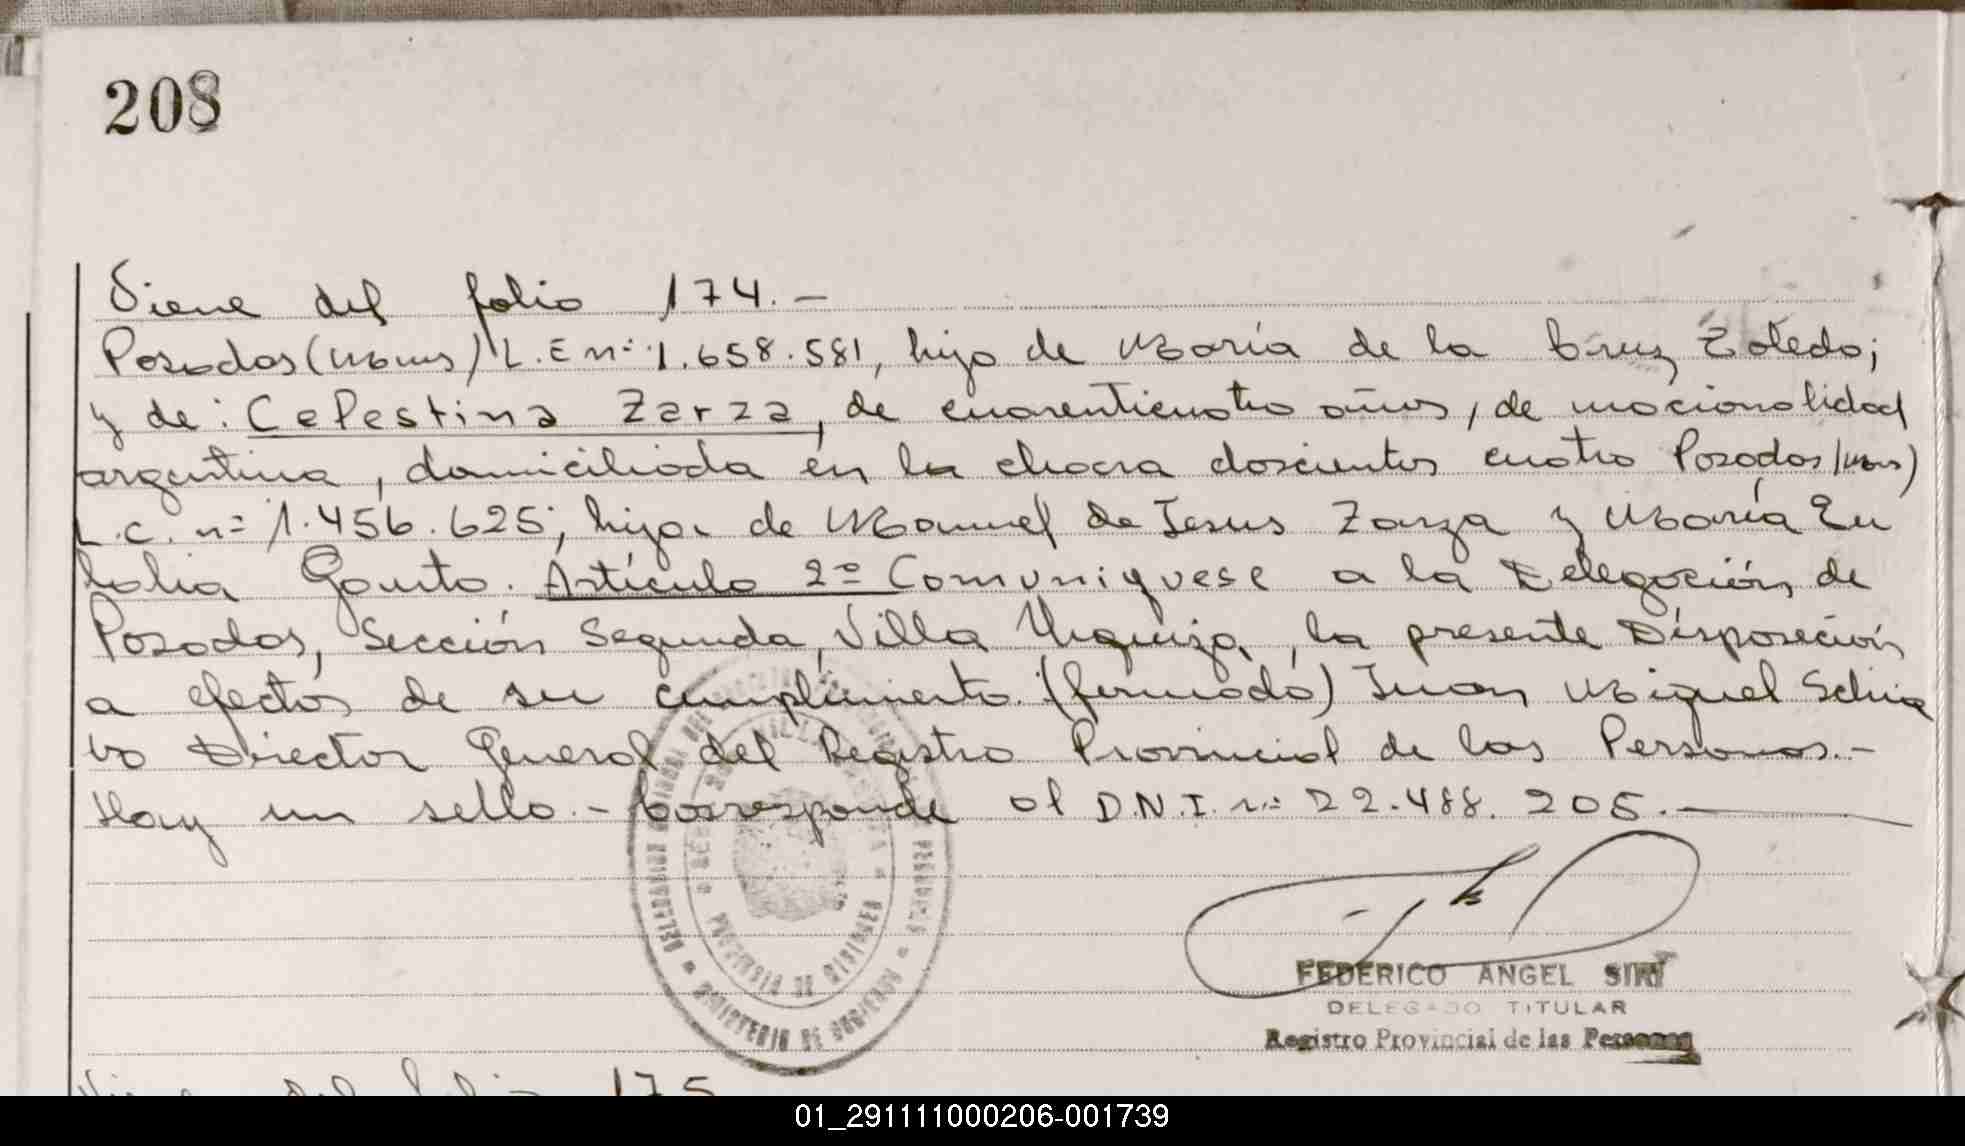 208
Viene del folio 174.-
Posadas (Mnes) L.E nº 1.658.581, hijo de María de la Cruz Toledo;
y de: Celestina Zarza, de cuarenticuatro años, de nacionalidad
argentina, domiciliada en la chacra doscientos cuatro Posadas (Mnes)
L.C. nº 1.456.625; hija de Manuel de Jesus Zarza y María Eu
lalia Gauto. Artículo 2º Comuniquese a la Delegación de
Posadas, Sección Segunda, Villa Urquiza, la presente Disposición
a efectos de su cumplimiento. (firmado) Juan Miguel Schia
vo Director General del Registro Provincial de las Personas.-
Hay un sello.- Corresponde al D.N.I. nº 22.488.205.-
PROVINCIA DE MISIONES
MINISTERIO DE GOBIERNO
FEDERICO ANGEL SIRI
DELEGADO TITULAR
Registro Provincial de las Personas
Viene del folio 175
01_291111000206-001739